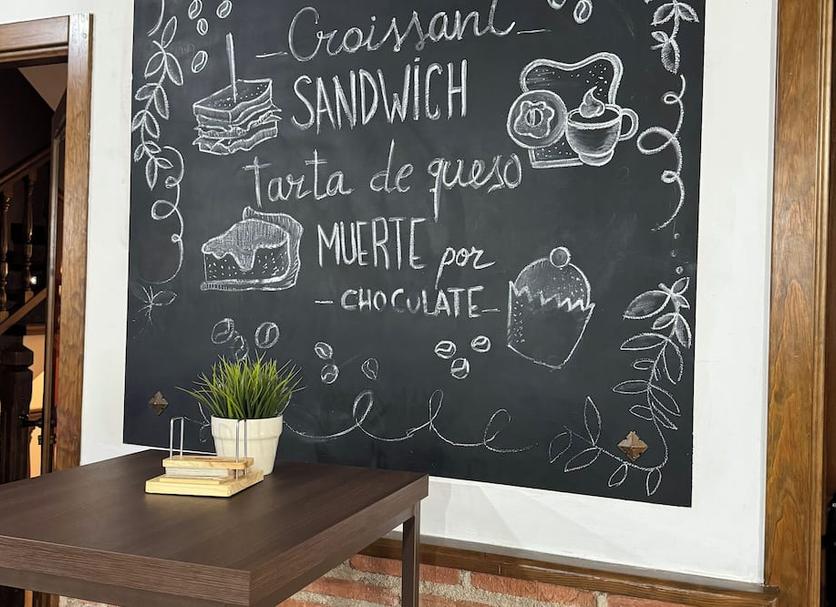 Croissant
SANDWiCH
tarta de queso
MUERTE por
CHOCULATE